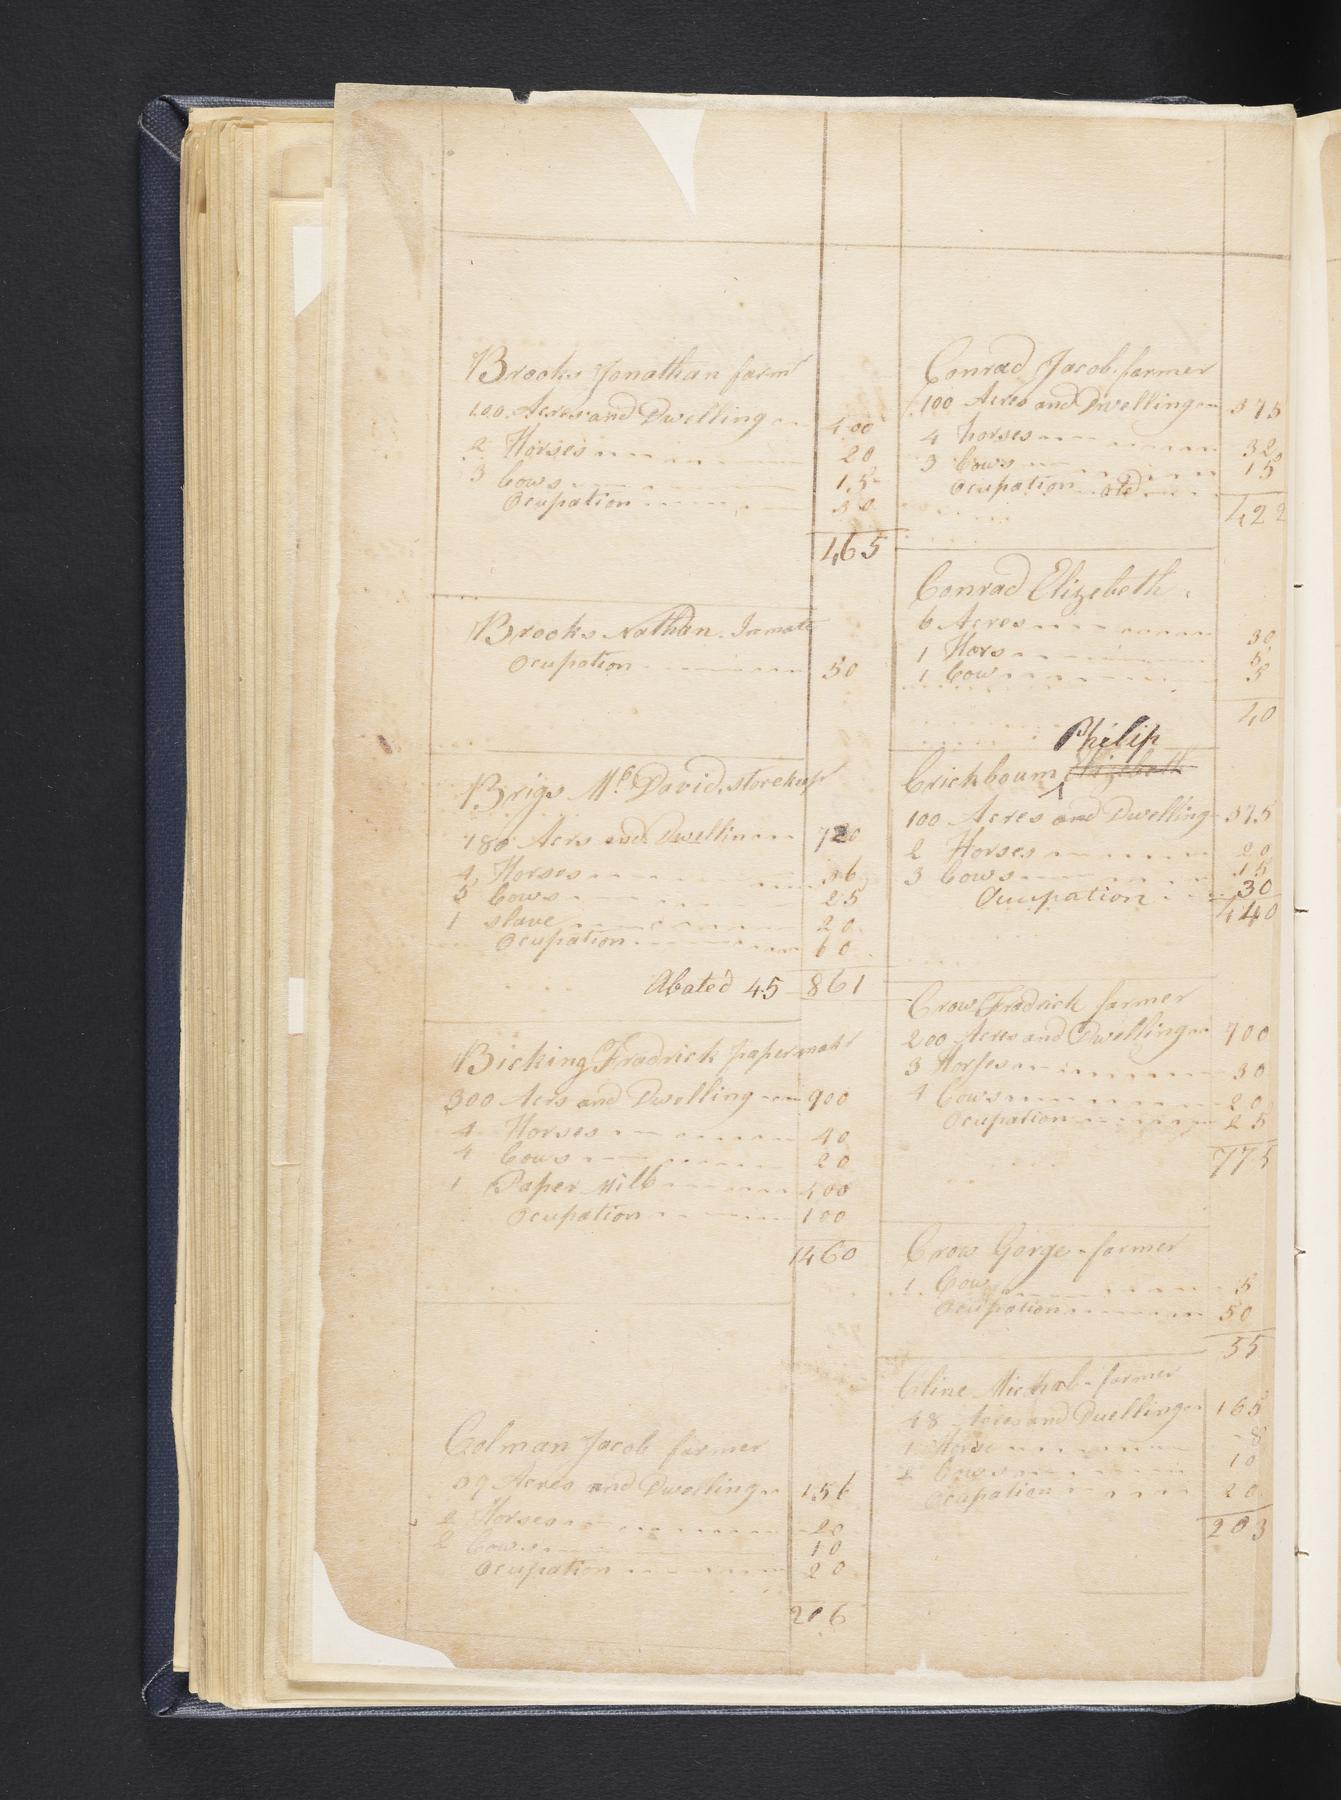 Brooks Jonathan farmr
100 Acres and Dwelling 400
2 Horses 20
3 Cows 15
Ocupation 30
465
Brooks Nathan Inmate
Ocupation 50
Brigs Mc David, storekeepr
180 Acrs and Dwellin 720
4 Horses 36
5 Cows 25
1 slave 20
Ocupation 60
Abated 45 861
Bicking Fradrick papermakr
300 Acrs and Dwelling 900
4 Horses 40
4 Cows 20
1 Paper Mill 400
Ocupation 100
1460
Colman Jacob farmer
39 Acres and Dwelling 156
2 Horses 20
2 Cows 10
Ocupation 20
206
Conrad Jacob farmer
100 Acres and Dwelling 375
4 horses 32
3 Cows 15
Ocupation old
422
Conrad Elizebeth
6 Acres 30
1 Hors 5
1 Cow 5
40
Philip
Crickboum Elizebeth
100 Acres and Dwelling 375
2 Horses 20
3 Cows 15
Ocupation 30
440
Crow Fradrick farmer
200 Acres and Dwelling 700
3 Horses 30
4 Cows 20
Ocupation 25
775
Crow Gorge farmer
1 Cow 5
Ocupation 50
55
Cline Michal farmer
48 Acres and Dwelling 165
1 Horse 8
2 Cows 10
Ocupation 20
203